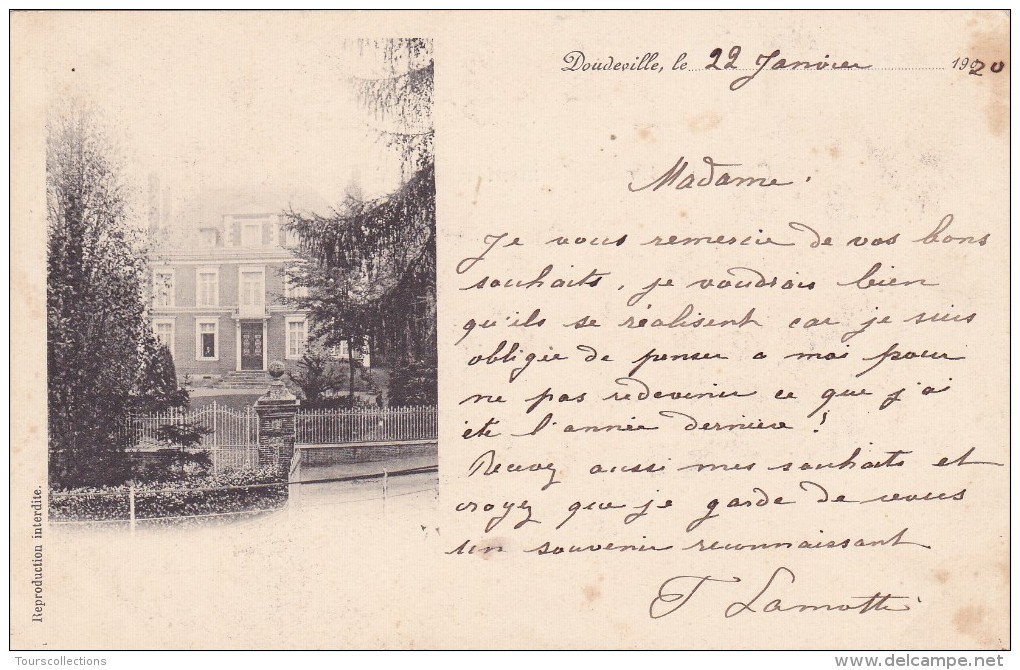 Doudeville, le 22 Janvier 1920
Madame.
Je vous remercie de vos bons
souhaits, je voudrais bien
qu'ils se réalisent car je suis
obligée de penser a moi pour
ne pas redevenir ce que j'ai
été l'année dernière !
Recevez aussi mes souhaits et
croyez que je garde de vous
un souvenir reconnaissant
T Lamotte
Reproduction interdite.
Tourscollections
delcampe.net